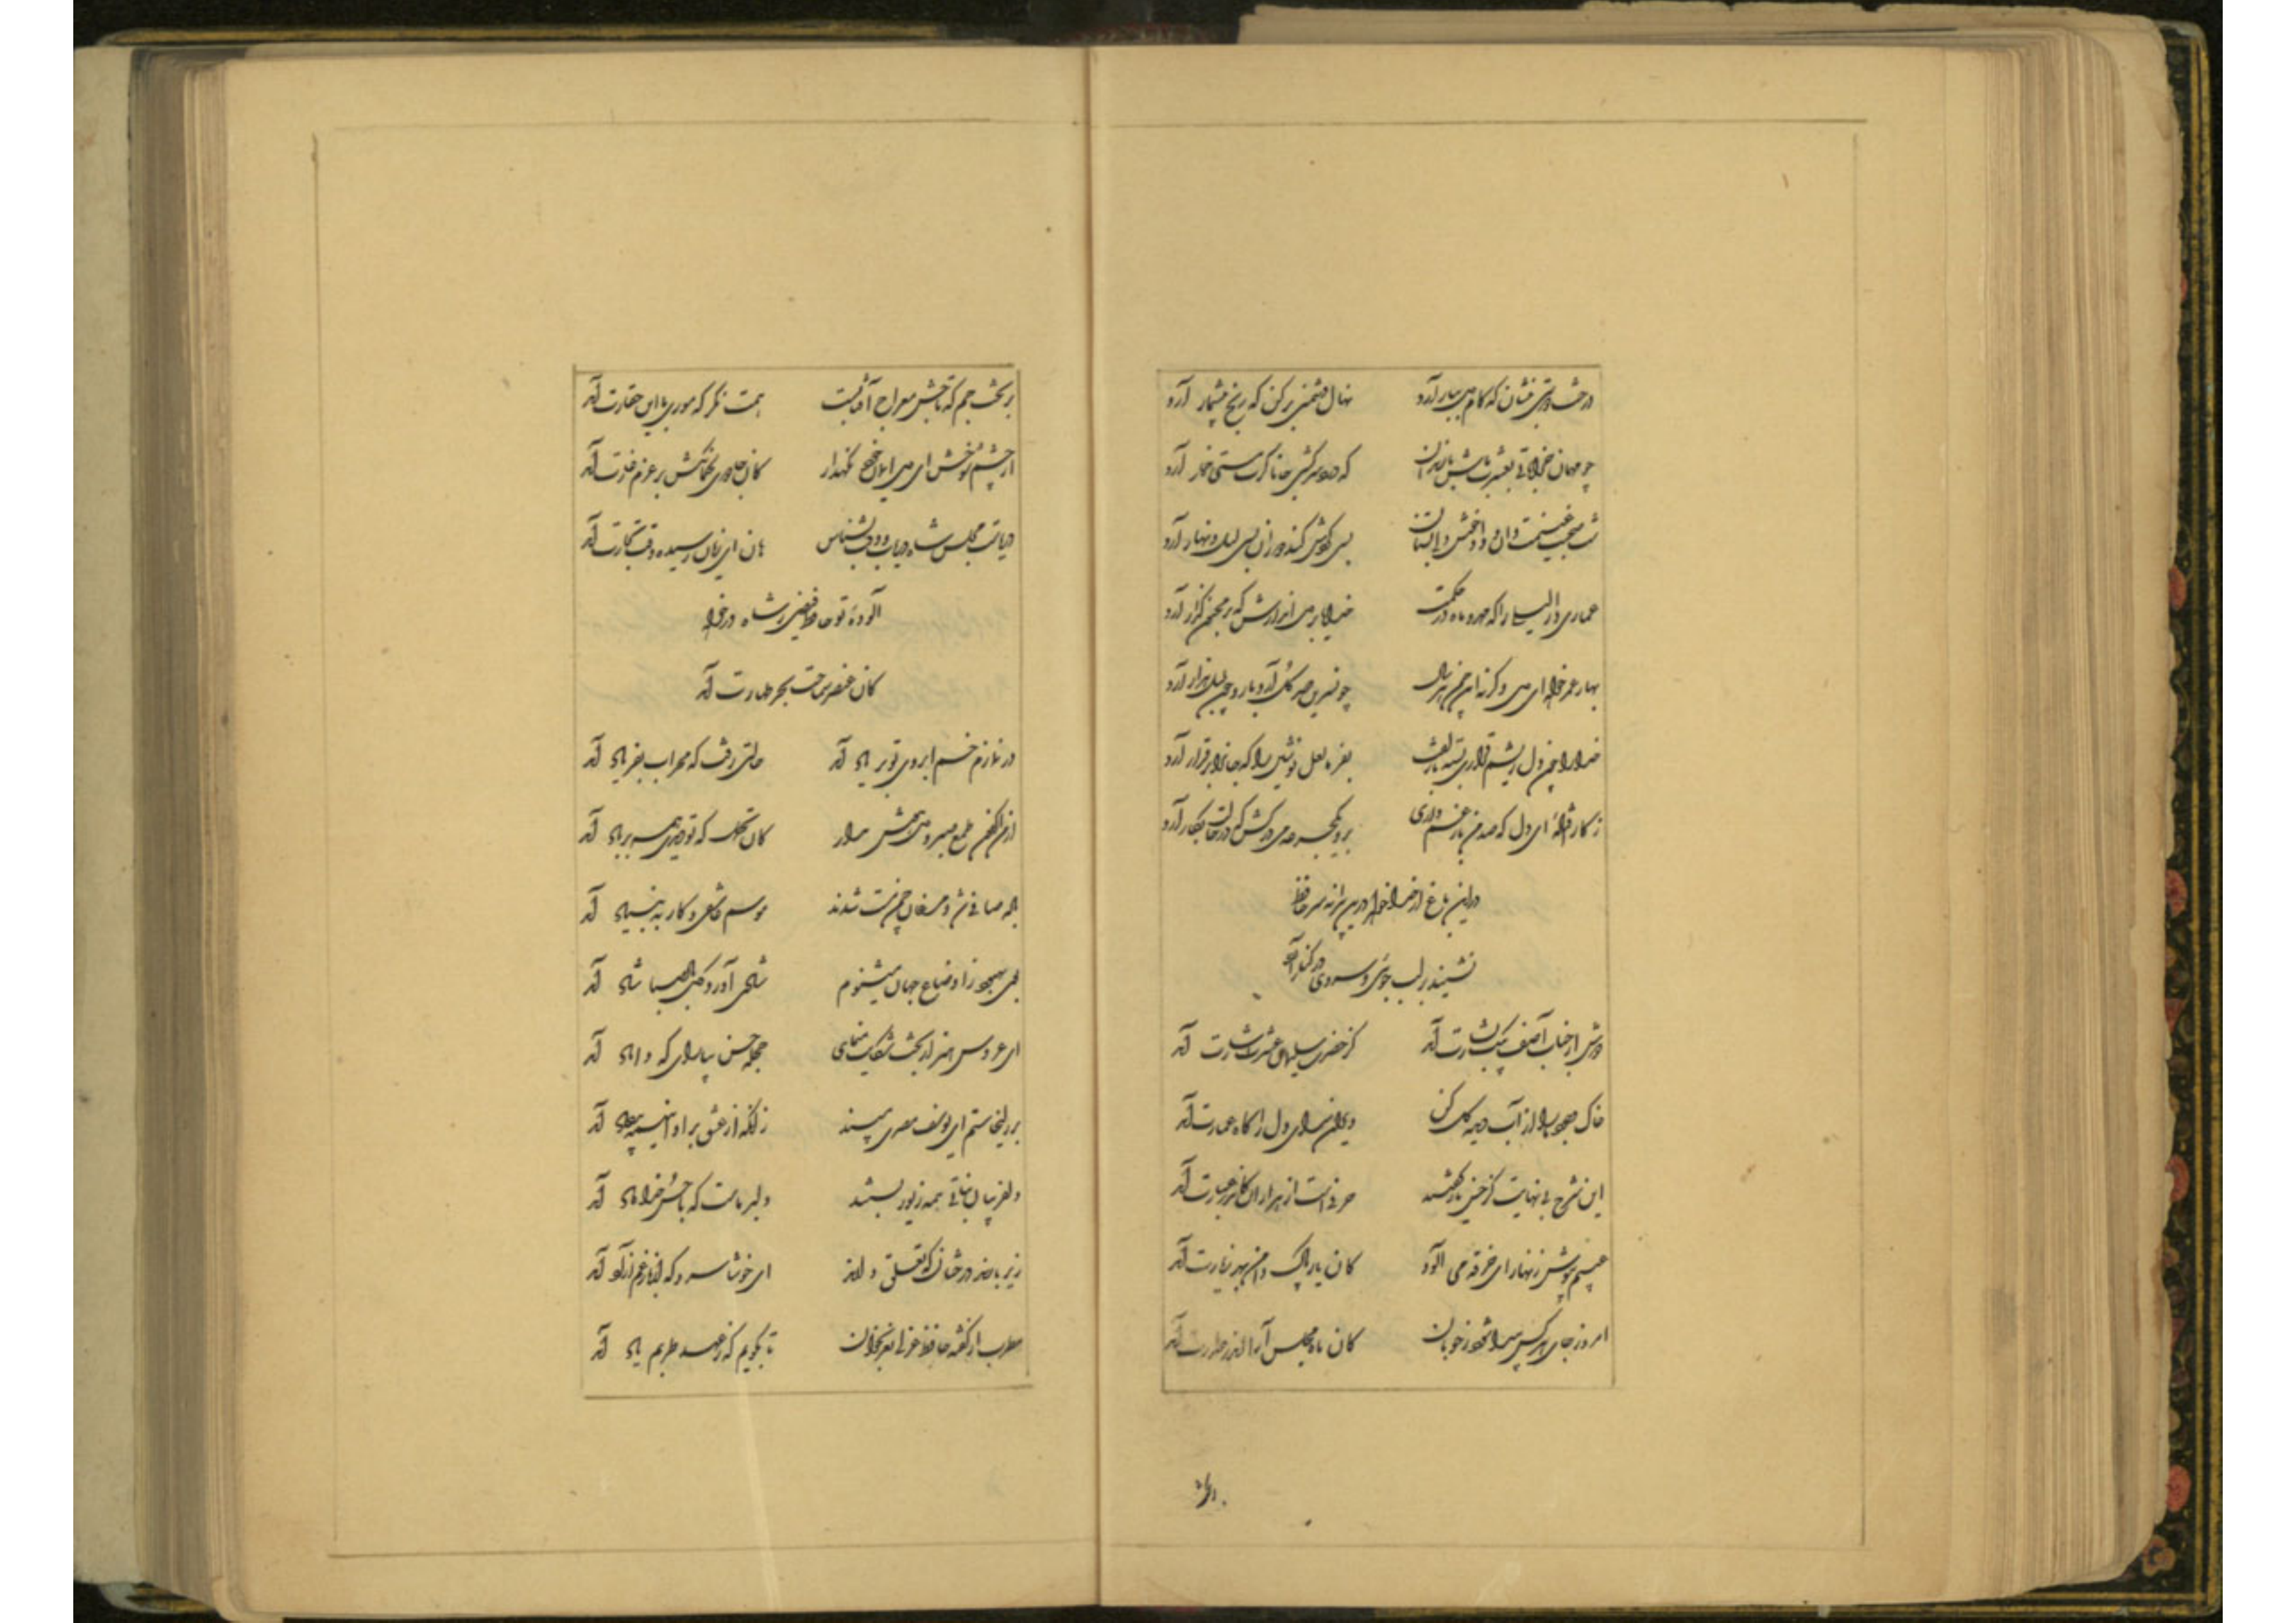 درخت دوستی بنشان که کام دل ببار آرد نهال دشمنی برکن که رنج بیشمار آرد
چو مهمان خراباتی بعشرت باش با رندان که درد سر کشی جانا گرت مستی خمار آرد
شب صحبت غنیمت دان و داد خوشدلی بستان بسی گردش کند گردون بسی لیل و نهار آرد
عماری دار لیلی را که مهد ماه در حکمت خدایا در دل اندازش که بر مجنون گذار آرد
بهار عمر خواه ای دل وگرنه این چمن هر سال چو نسرین صد گل آرد بار و چون بلبل هزار آرد
خدا را چون دل ریشم قراری بسته با زلفت بفرما لعل نوشین را که جانرا برقرار آرد
ز کار افتاده ای دل که صد من بار غم داری برو یکجرعه می درکش که در حالت بکار آرد
درین باغ از خدا خواهد درین پیرانه سر حافظ
نشیند بر لب جوئی و سروی در کنار آرد
دوش از جناب آصف پیک بشارت آمد کز حضرت سلیمان عشرت اشارت آمد
خاک وجود ما را از آب دیده گل کن ویران سرای دل را گاه عمارت آمد
این شرح بی نهایت کز حسن یار گفتند حرفی است از هزاران کاندر عبارت آمد
عیبم بپوش زنهار ای خرقه می آلود کان یار پاک دامن بهر زیارت آمد
امروز جای هر کس پیدا شود ز خوبان کان ماه مجلس آرا اندر صدارت آمد
بر تخت جم که تاجش معراج آفتابست همت نگر که موری با این حقارت آمد
از چشم شوخش ای دل ایمان خود نگهدار کان جادوی کمانکش بر عزم غارت آمد
دریاست مجلس شاه دریاب وقت و بشناس هان ای زیان رسیده وقت تجارت آمد
آلودهٔ تو حافظ فیضی ز شاه درخواه
کان عنصر سماحت بهر طهارت آمد
در نمازم خم ابروی تو بر یاد آمد حالتی رفت که محراب بفریاد آمد
از من اکنون طمع صبر و دل و هوش مدار کان تحمل که تو دیدی همه بر باد آمد
باده صافی شد و مرغان چمن مست شدند موسم عاشقی و کار به بنیاد آمد
بوی بهبود ز اوضاع جهان میشنوم شادی آورد گل و باد صبا شاد آمد
ای عروس هنر از بخت شکایت منمای حجله حسن بیارای که داماد آمد
بر زلیخا ستم ای یوسف مصری مپسند زانکه از عشق بر او اینهمه بیداد آمد
دلفریبان نباتی همه زیور بستند دلبر ماست که با حسن خداداد آمد
زیر بارند درختان که تعلق دارند ای خوشا سرو که از بار غم آزاد آمد
مطرب از گفته حافظ غزلی نغز بخوان تا بگویم که ز عهد طربم یاد آمد